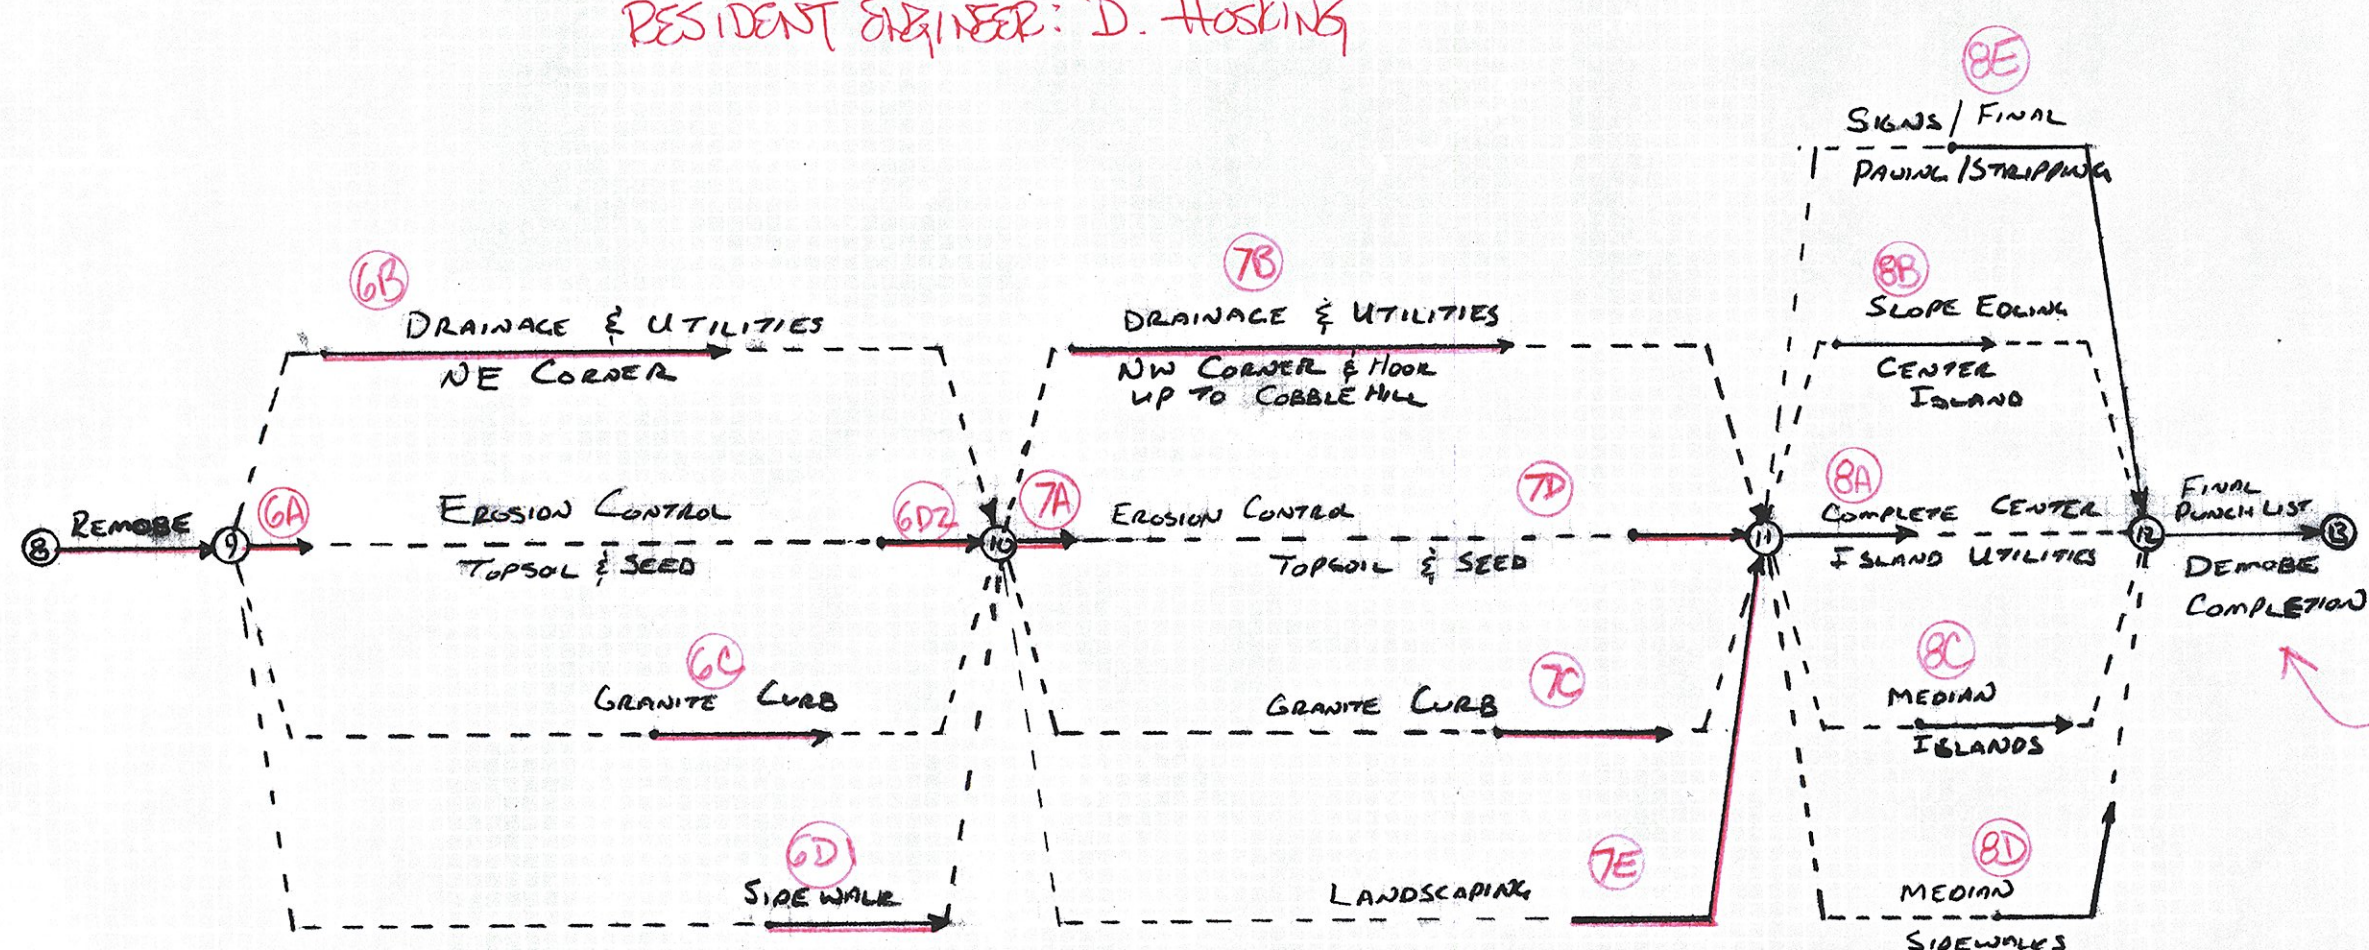 RESIDENT ENGINEER: D. HOSKING
8E
SIGNS / FINAL
PAVING / STRIPPING
6B
DRAINAGE & UTILITIES
NE CORNER
7B
DRAINAGE & UTILITIES
NW CORNER & HOOK
UP TO COBBLE HILL
8B
SLOPE EDGING
CENTER
ISLAND
8
REMOBE
9
6A
EROSION CONTROL
TOPSOIL & SEED
6D2
10
7A
EROSION CONTROL
TOPSOIL & SEED
7D
11
8A
COMPLETE CENTER
ISLAND UTILITIES
12
FINAL
PUNCHLIST
13
DEMOBE
COMPLETION
6C
GRANITE CURB
7C
GRANITE CURB
8C
MEDIAN
ISLANDS
6D1
SIDEWALK
7E
LANDSCAPING
8D
MEDIAN
SIDEWALKS